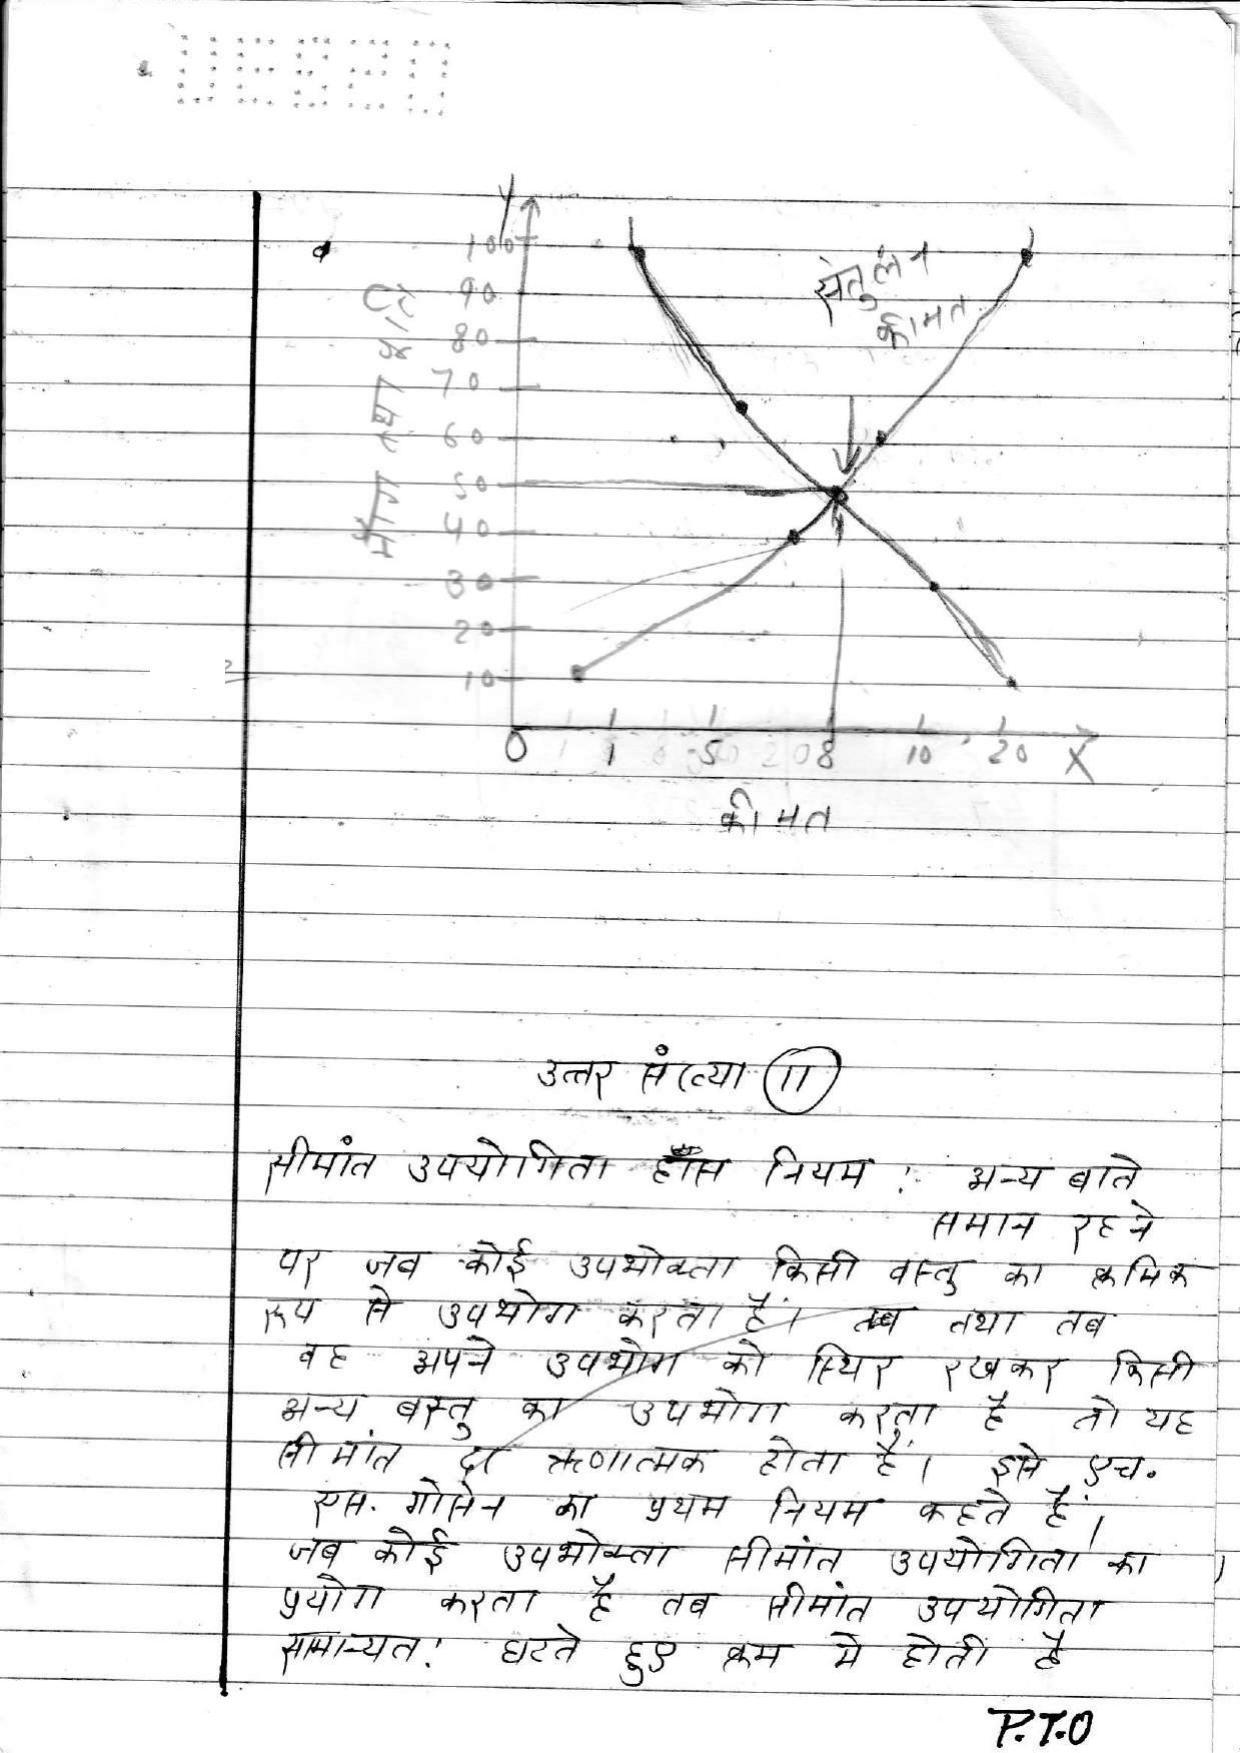 Y
100
90
80
70
60
50
40
30
20
10
माँग तथा पूर्ति
संतुलन
कीमत
0 1 5 8 10 20 X
कीमत
उत्तर संख्या 11
सीमांत उपयोगिता ह्रास नियम : अन्य बाते
समान रहने
पर जब कोई उपभोक्ता किसी वस्तु का क्रमिक
रूप से उपभोग करता है। तथा तब
वह अपने उपभोग को स्थिर रखकर किसी
अन्य वस्तु का उपभोग करता है तो यह
सीमांत ऋणात्मक होता है। इसे एच.
एस. गोसेन का प्रथम नियम कहते हैं।
जब कोई उपभोक्ता सीमांत उपयोगिता का
प्रयोग करता है तब सीमांत उपयोगिता
सामान्यत: घटते हुए क्रम मे होती है
P.T.O